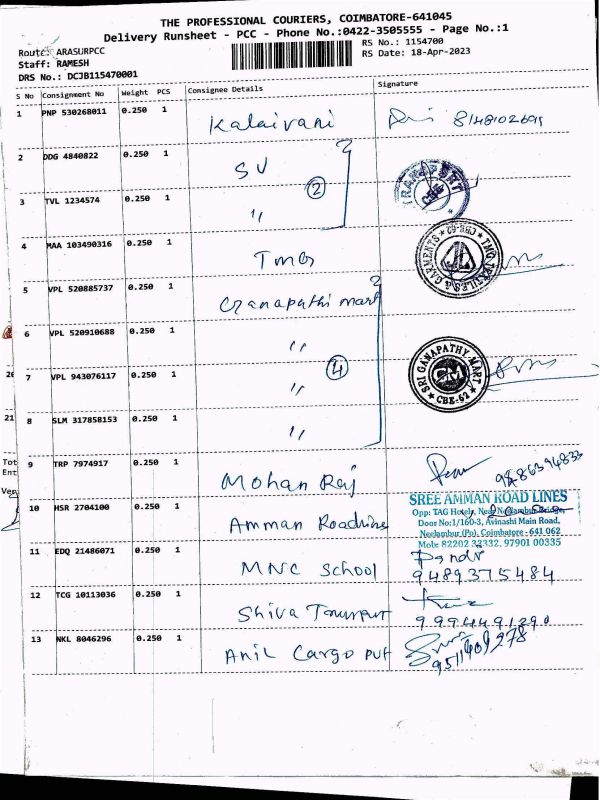 THE PROFESSIONAL COURIERS, COIMBATORE-641045
Delivery Runsheet - PCC - Phone No.:0422-3505555 - Page No.:1
Route: ARASURPCC
RS No.: 1154700
Staff: RAMESH
RS Date: 18-Apr-2023
DRS No.: DCJB115470001
S No Consignment No Weight PCS Consignee Details Signature
1 PNP 530268011 0.250 1 Kalaivani
2 DDG 4840822 0.250 1 SV
TRANSPORT CBE
3 TVL 1234574 0.250 1 " 2
4 MAA 103490316 0.250 1 TMG
TMG TEXTILES & GARMENTS CBE-62
5 VPL 520885737 0.250 1 Ganapathi mart
6 VPL 520910688 0.250 1 "
7 VPL 943076117 0.250 1 " 4
SRI GANAPATHY MART CBE-62 GM
8 SLM 317858153 0.250 1 "
9 TRP 7974917 0.250 1 Mohan Raj
10 HSR 2704100 0.250 1 Amman Roadline
SREE AMMAN ROAD LINES
Opp: TAG Hotels, Near Neelambur Bridge,
Door No:1/160-3, Avinashi Main Road,
Neelambur (Po), Coimbatore - 641 062
Mob: 82202 32332, 97901 00335
11 EDQ 21486071 0.250 1 MNC School
9489375484
12 TCG 10113036 0.250 1 Shiva
9994491290
13 NKL 8046296 0.250 1 Anil Cargo pvt
20
21
Tot
Ent
Ver